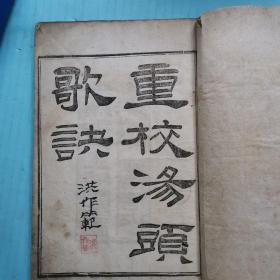 重校湯頭
歌訣
洪作範